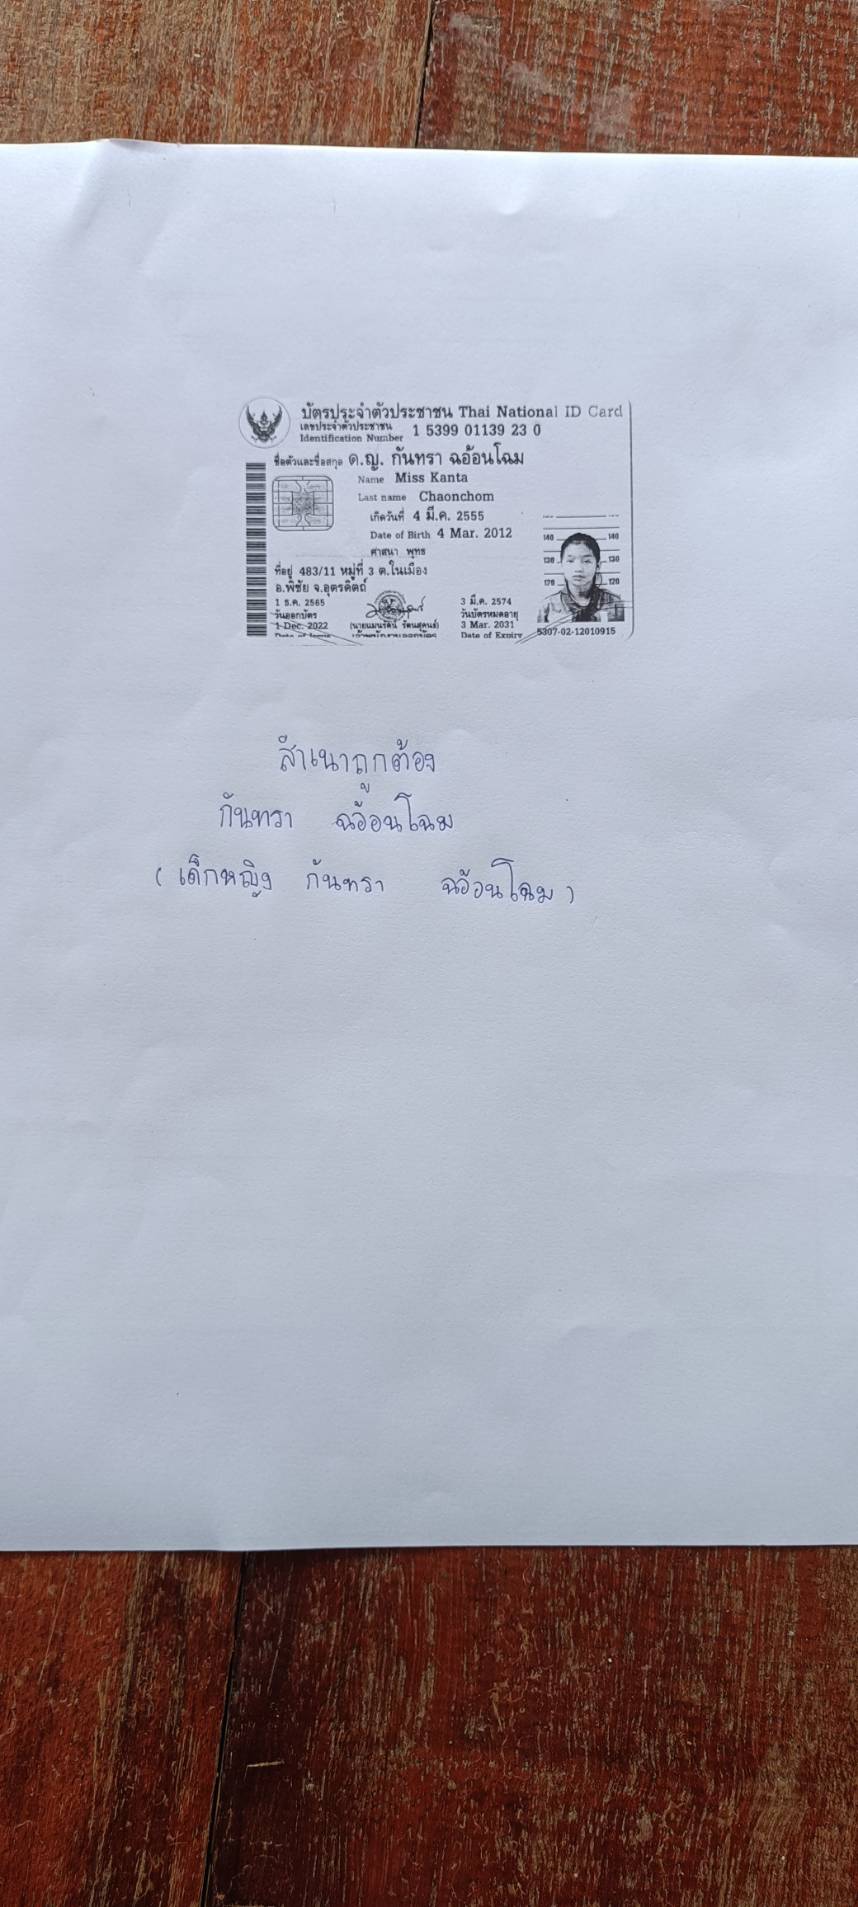 บัตรประจำตัวประชาชน Thai National ID Card
เลขประจำตัวประชาชน
Identification Number 1 5399 01139 23 0
ชื่อตัวและชื่อสกุล ด.ญ. กันทรา ฉอ้อนโฉม
Name Miss Kanta
Last name Chaonchom
เกิดวันที่ 4 มี.ค. 2555
Date of Birth 4 Mar. 2012
ศาสนา พุทธ
ที่อยู่ 483/11 หมู่ที่ 3 ต.ในเมือง
อ.พิชัย จ.อุตรดิตถ์
1 ธ.ค. 2565
วันออกบัตร
1 Dec. 2022
Date of Issue
เจ้าพนักงานออกบัตร
3 มี.ค. 2574
วันบัตรหมดอายุ
3 Mar. 2031
Date of Expiry
140 140
130 130
120 120
5307-02-12010915
สำเนาถูกต้อง
กันทรา ฉอ้อนโฉม
( เด็กหญิง กันทรา ฉอ้อนโฉม )